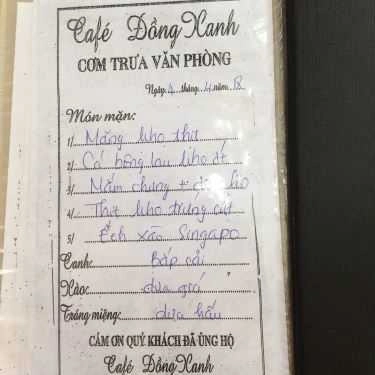 Café Đồng Xanh
CƠM TRƯA VĂN PHÒNG
Ngày 4 tháng 4 năm 18
Món mặn:
1/ Măng kho thịt
2/ Cá bông lau kho ớt
3/ Mắm chưng + kho
4/ Thịt kho trứng cút
5/ Ếch xào Singapo
Canh: Bắp cải
Xào: dưa giá
Tráng miệng: dưa hấu
CẢM ƠN QUÝ KHÁCH ĐÃ ỦNG HỘ
Café Đồng Xanh